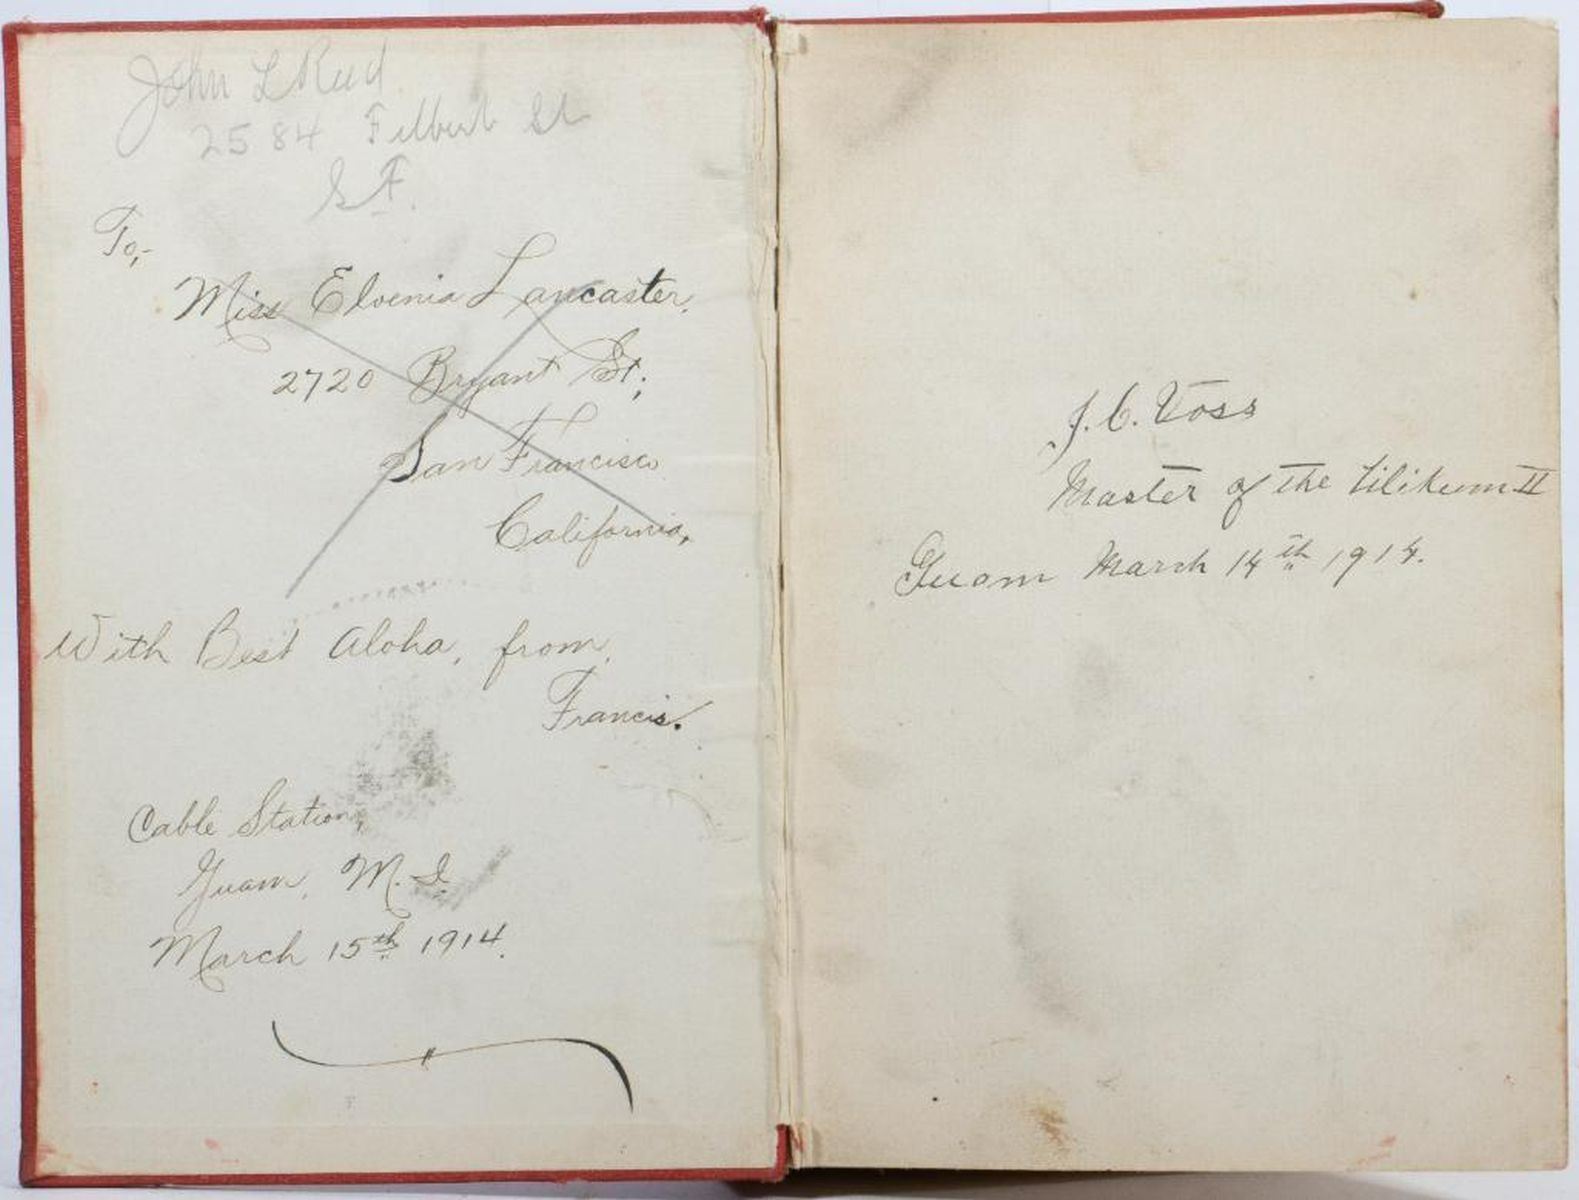 John L Reed
2584 Filbert St
S F.
To,-
Miss Elvenia Lancaster.
2720 Bryant St;
San Francisco
California,
With Best Aloha, from,
Francis.
Cable Station,
Guam, M. I.
March 15th 1914.
J. C. Voss
Master of the Tilikum II
Guam March 14th 1914.